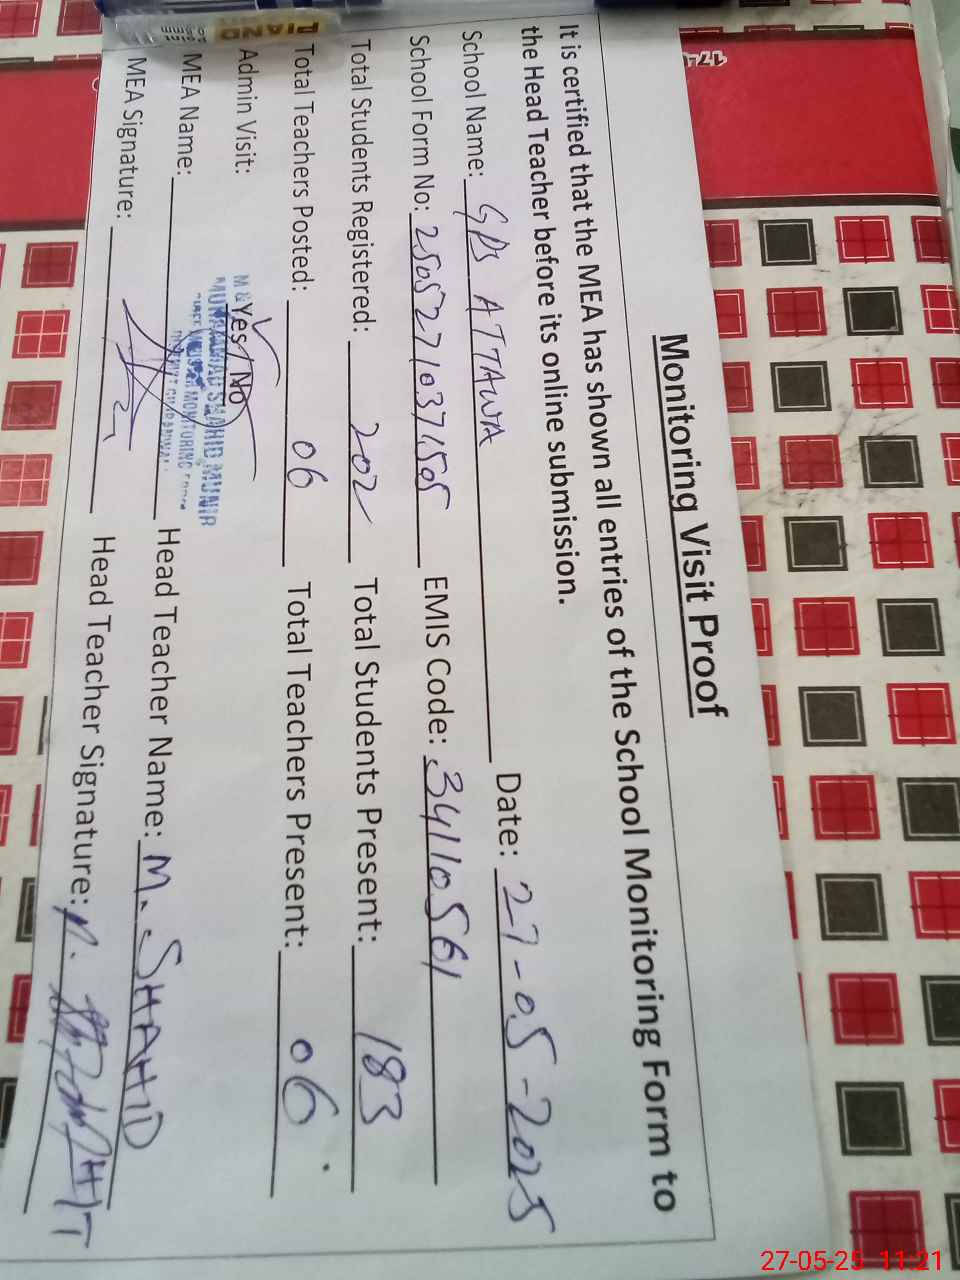 Monitoring Visit Proof
It is certified that the MEA has shown all entries of the School Monitoring Form to
the Head Teacher before its online submission.
School Name: GPS ATTAWA Date: 27-05-2025
School Form No: 2505271037505 EMIS Code: 34110561
Total Students Registered: 202 Total Students Present: 183
Total Teachers Posted: 06 Total Teachers Present: 06
Admin Visit: Yes / No
M & 
MUHAMMAD SHAHID MUNIR
MONITORING
MEA Name: Head Teacher Name: M. SHAHID
MEA Signature: Head Teacher Signature:
27-05-25 11:21